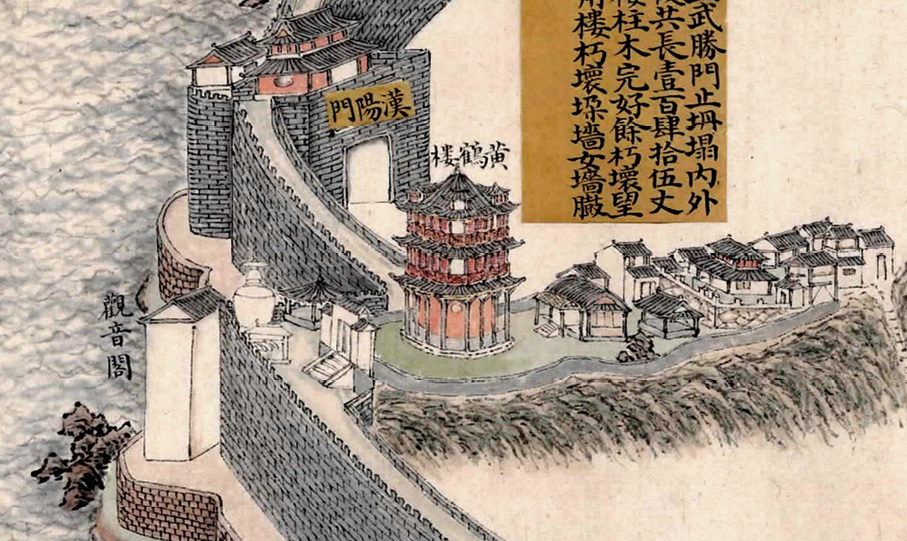 武勝門止坍塌內外
共長壹百肆拾伍丈
柱木完好餘朽壞望
樓朽壞垛墻女墻臌
漢陽門
黄鶴楼
觀音閣